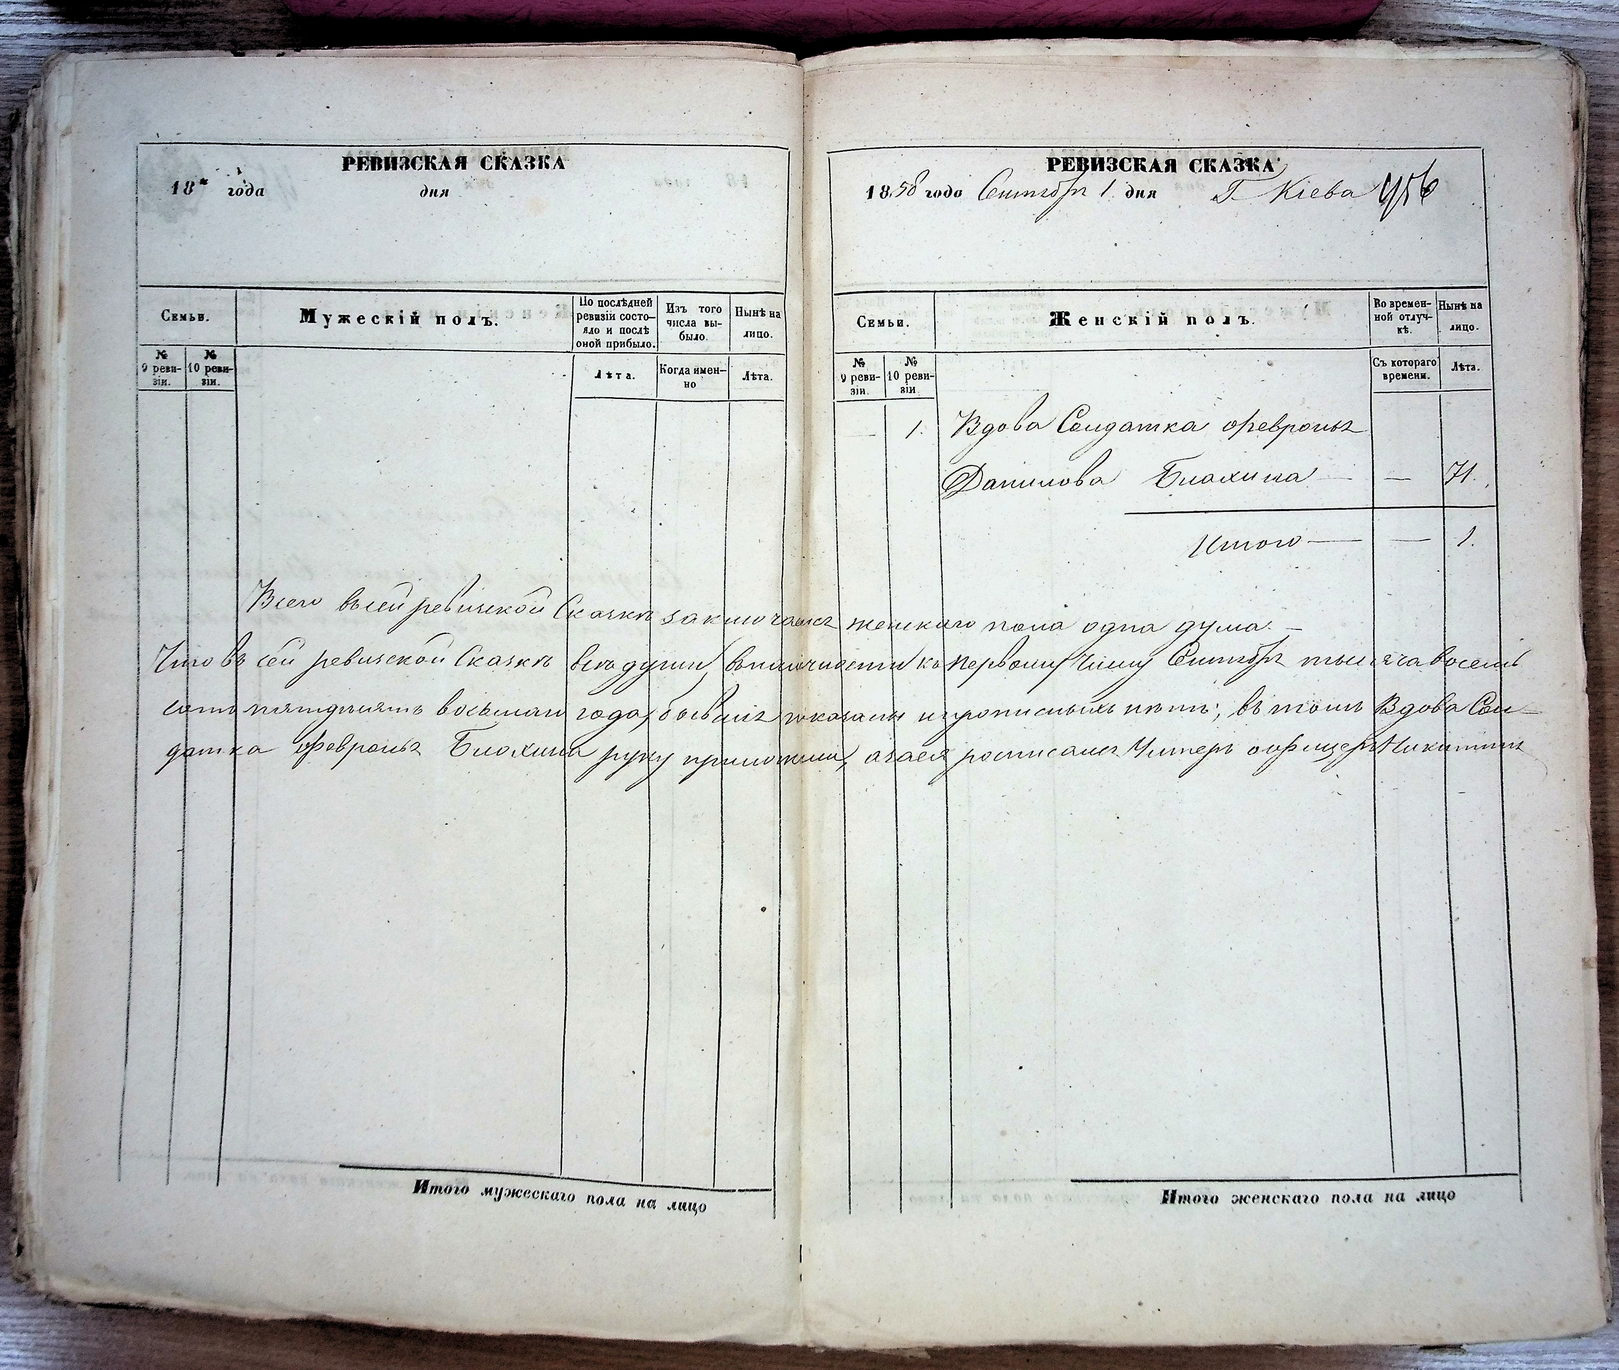 РЕВИЗСКАЯ СКАЗКА
18 года дня
Семьи.
Мужескій полъ.
По послѣдней ревизіи состояло и послѣ оной прибыло.
Изъ того числа выбыло.
Нынѣ на лицо.
№ 9 ревизіи.
№ 10 ревизіи.
Лѣта.
Когда именно
Лѣта.
РЕВИЗСКАЯ СКАЗКА
1858 года Сентября 1 дня Г. Кіева
Семьи.
Женскій полъ.
Во временной отлучкѣ.
Нынѣ на лицо.
№ 9 ревизіи.
№ 10 ревизіи.
Съ котораго времени.
Лѣта.
— 1. Вдова Солдатка Февронья
Данилова Блохина — — 71.
Итого — — 1.
Всего въ сей ревизской Сказкѣ заключается женскаго пола одна душа. —
Что въ сей ревизской Сказкѣ всѣ души, въ наличности къ первому числу Сентября тысяча восемь
сотъ пятдесятъ восьмаго года, бывшія показаны и прописныхъ нѣтъ; въ томъ Вдова Сол-
датка Февронья Блохина руку приложила, а за ея росписался Унтеръ офицеръ Никитинъ
Итого мужескаго пола на лицо
Итого женскаго пола на лицо